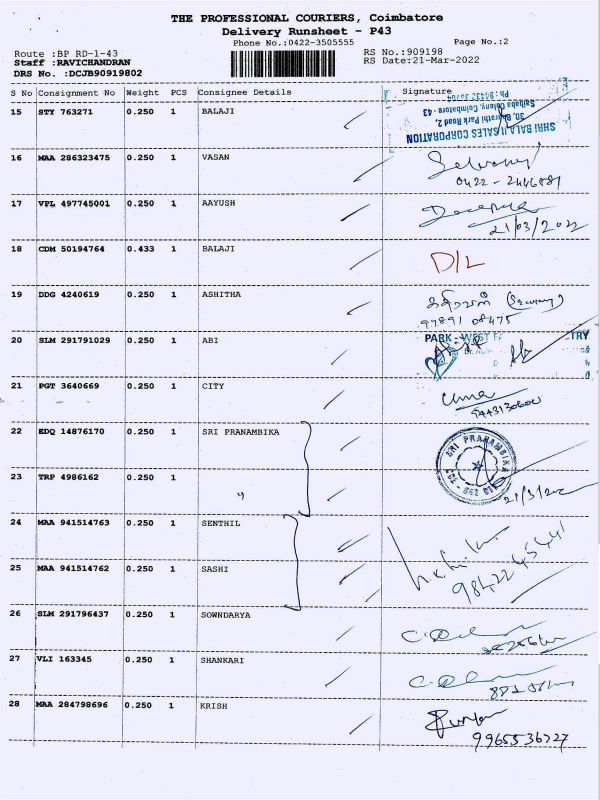 THE PROFESSIONAL COURIERS, Coimbatore
Delivery Runsheet - P43
Phone No.:0422-3505555 Page No.:2
Route :BP RD-1-43 RS No.:909198
Staff :RAVICHANDRAN RS Date:21-Mar-2022
DRS No. :DCJB90919802
S No Consignment No Weight PCS Consignee Details Signature
15 STY 763271 0.250 1 BALAJI
SHRI BALAJI SALES CORPORATION
30, Bharathi Park Road 2,
Saibaba Colony, Coimbatore - 43
16 MAA 286323475 0.250 1 VASAN
0422 - 2446881
17 VPL 497745001 0.250 1 AAYUSH
21/03/2022
18 CDM 50194764 0.433 1 BALAJI D/L
19 DDG 4240619 0.250 1 ASHITHA
97891 08475
20 SLM 291791029 0.250 1 ABI PARK WEST TRY
21 PGT 3640669 0.250 1 CITY Uma
22 EDQ 14876170 0.250 1 SRI PRANAMBIKA SRI PRANAMBIKA
23 TRP 4986162 0.250 1 "
24 MAA 941514763 0.250 1 SENTHIL
25 MAA 941514762 0.250 1 SASHI
26 SLM 291796437 0.250 1 SOWNDARYA
27 VLI 163345 0.250 1 SHANKARI
28 MAA 284798696 0.250 1 KRISH
9965536727